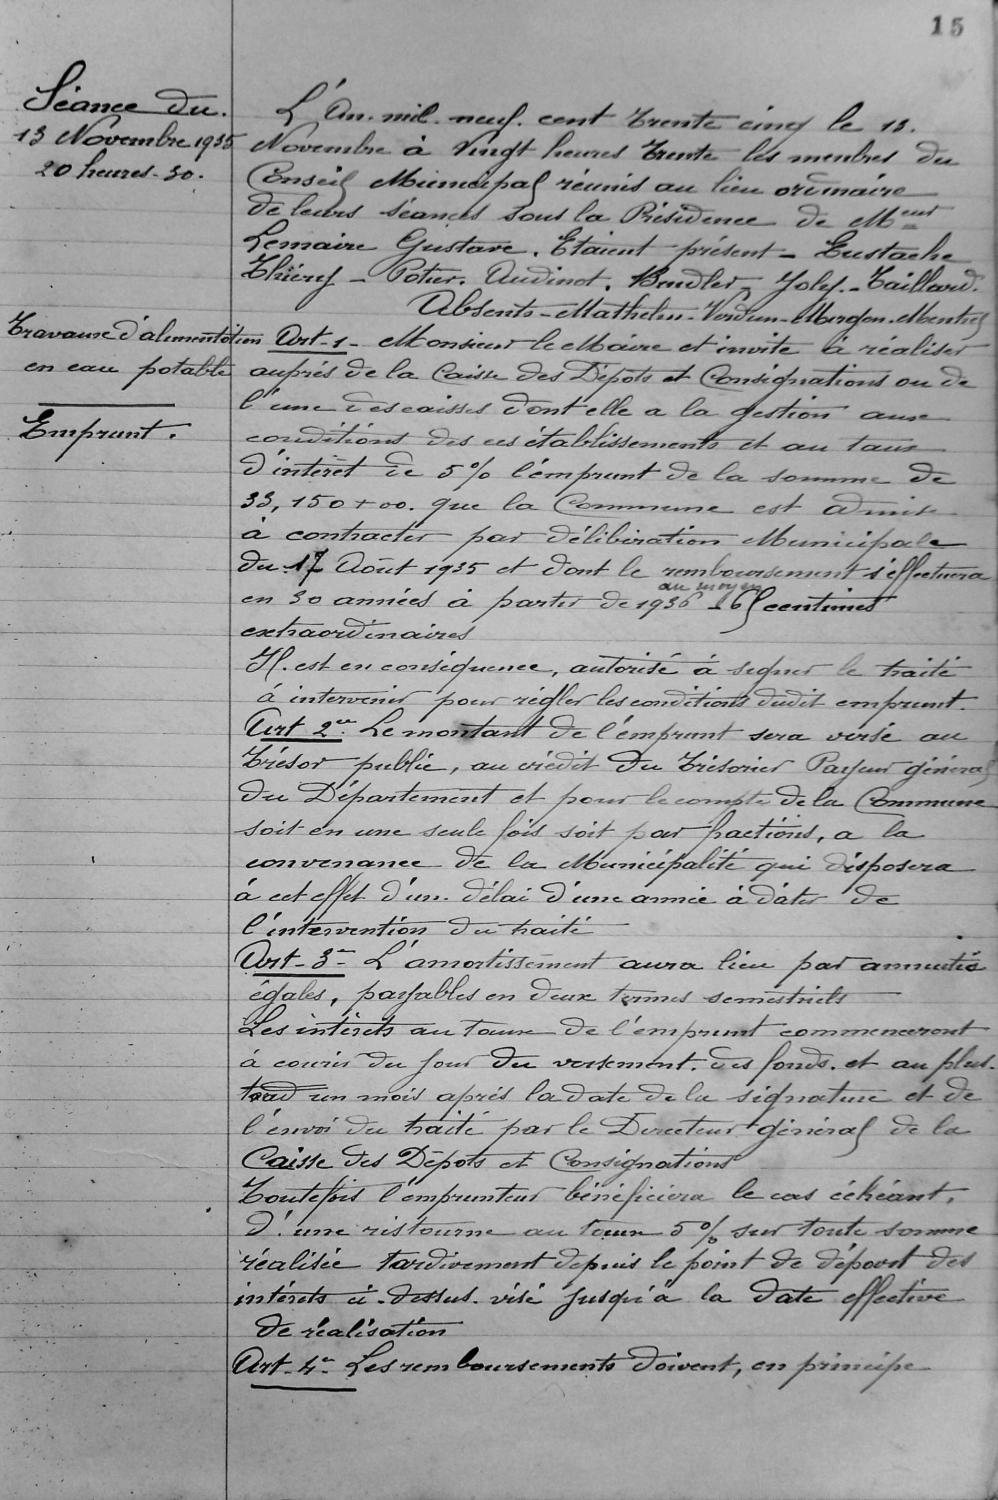 15
Séance du.
13 Novembre 1935
20 heures-30.
L'An. mil. neuf. cent trente cinq le 13.
Novembre à Vingt heures trente les menbres du
Conseil Municipal réunis au lieu ordinaire
de leurs séances sous la Présidence de Meur
Lemaire Gustave. Etaient présent - Eustache
Thiéry - Potier. Audinot. Bindler - Joly. - Taillard.
Absents - Mathelin - Verdun - Morgon - Mentrel
Travaux d'alimentation
en eau potable
Emprunt.
Art-1- Monsieur le Maire et invité à réaliser
auprés de la Caisse des Dépots et Consignations ou de
l'une des caisses dont elle a la gestion aux
conditions des ces établissements et au taux
d'intéret de 5% l'emprunt de la somme de
33,150+00. que la Commune est admise
à contracter par délibération Municipale
du 17 Août 1935 et dont le remboursement s'effectuera
au moyen
en 30 années à partir de 1936 - 65 centimes
extraordinaires
Il. est en conséquence, autorisé à signer le traité
à intervenir pour régler les conditions dudit emprunt.
Art 2e. Le montant de l'emprunt sera versé au
Trésor public, au crédit du Trésorier Payeur général
du Département et pour le compte de la Commune
soit en une seule fois soit par fractions, a la
convenance de la Municipalité qui disposera
à cet effet d'un délai d'une année à dater de
l'intervention du traité
Art-3- L'amortissement aura lieu par annuités
égales, payables en deux termes semestriels
Les intérets au taux de l'emprunt commenceront
à courir du jour du versement. des fonds. et au plus.
tard un mois aprés la date de la signature et de
l'envoi du traité par le Directeur général de la
Caisse des Dépots et Consignations
Toutefois l'emprunteur bénéficiera le cas échéant,
d'une ristourne au taux 5% sur toute somme
réalisée tardivement depuis le point de départ des
intérets ci-dessus. visé jusqu'à la date effective
de réalisation
Art-4- Les remboursements doivent, en principe